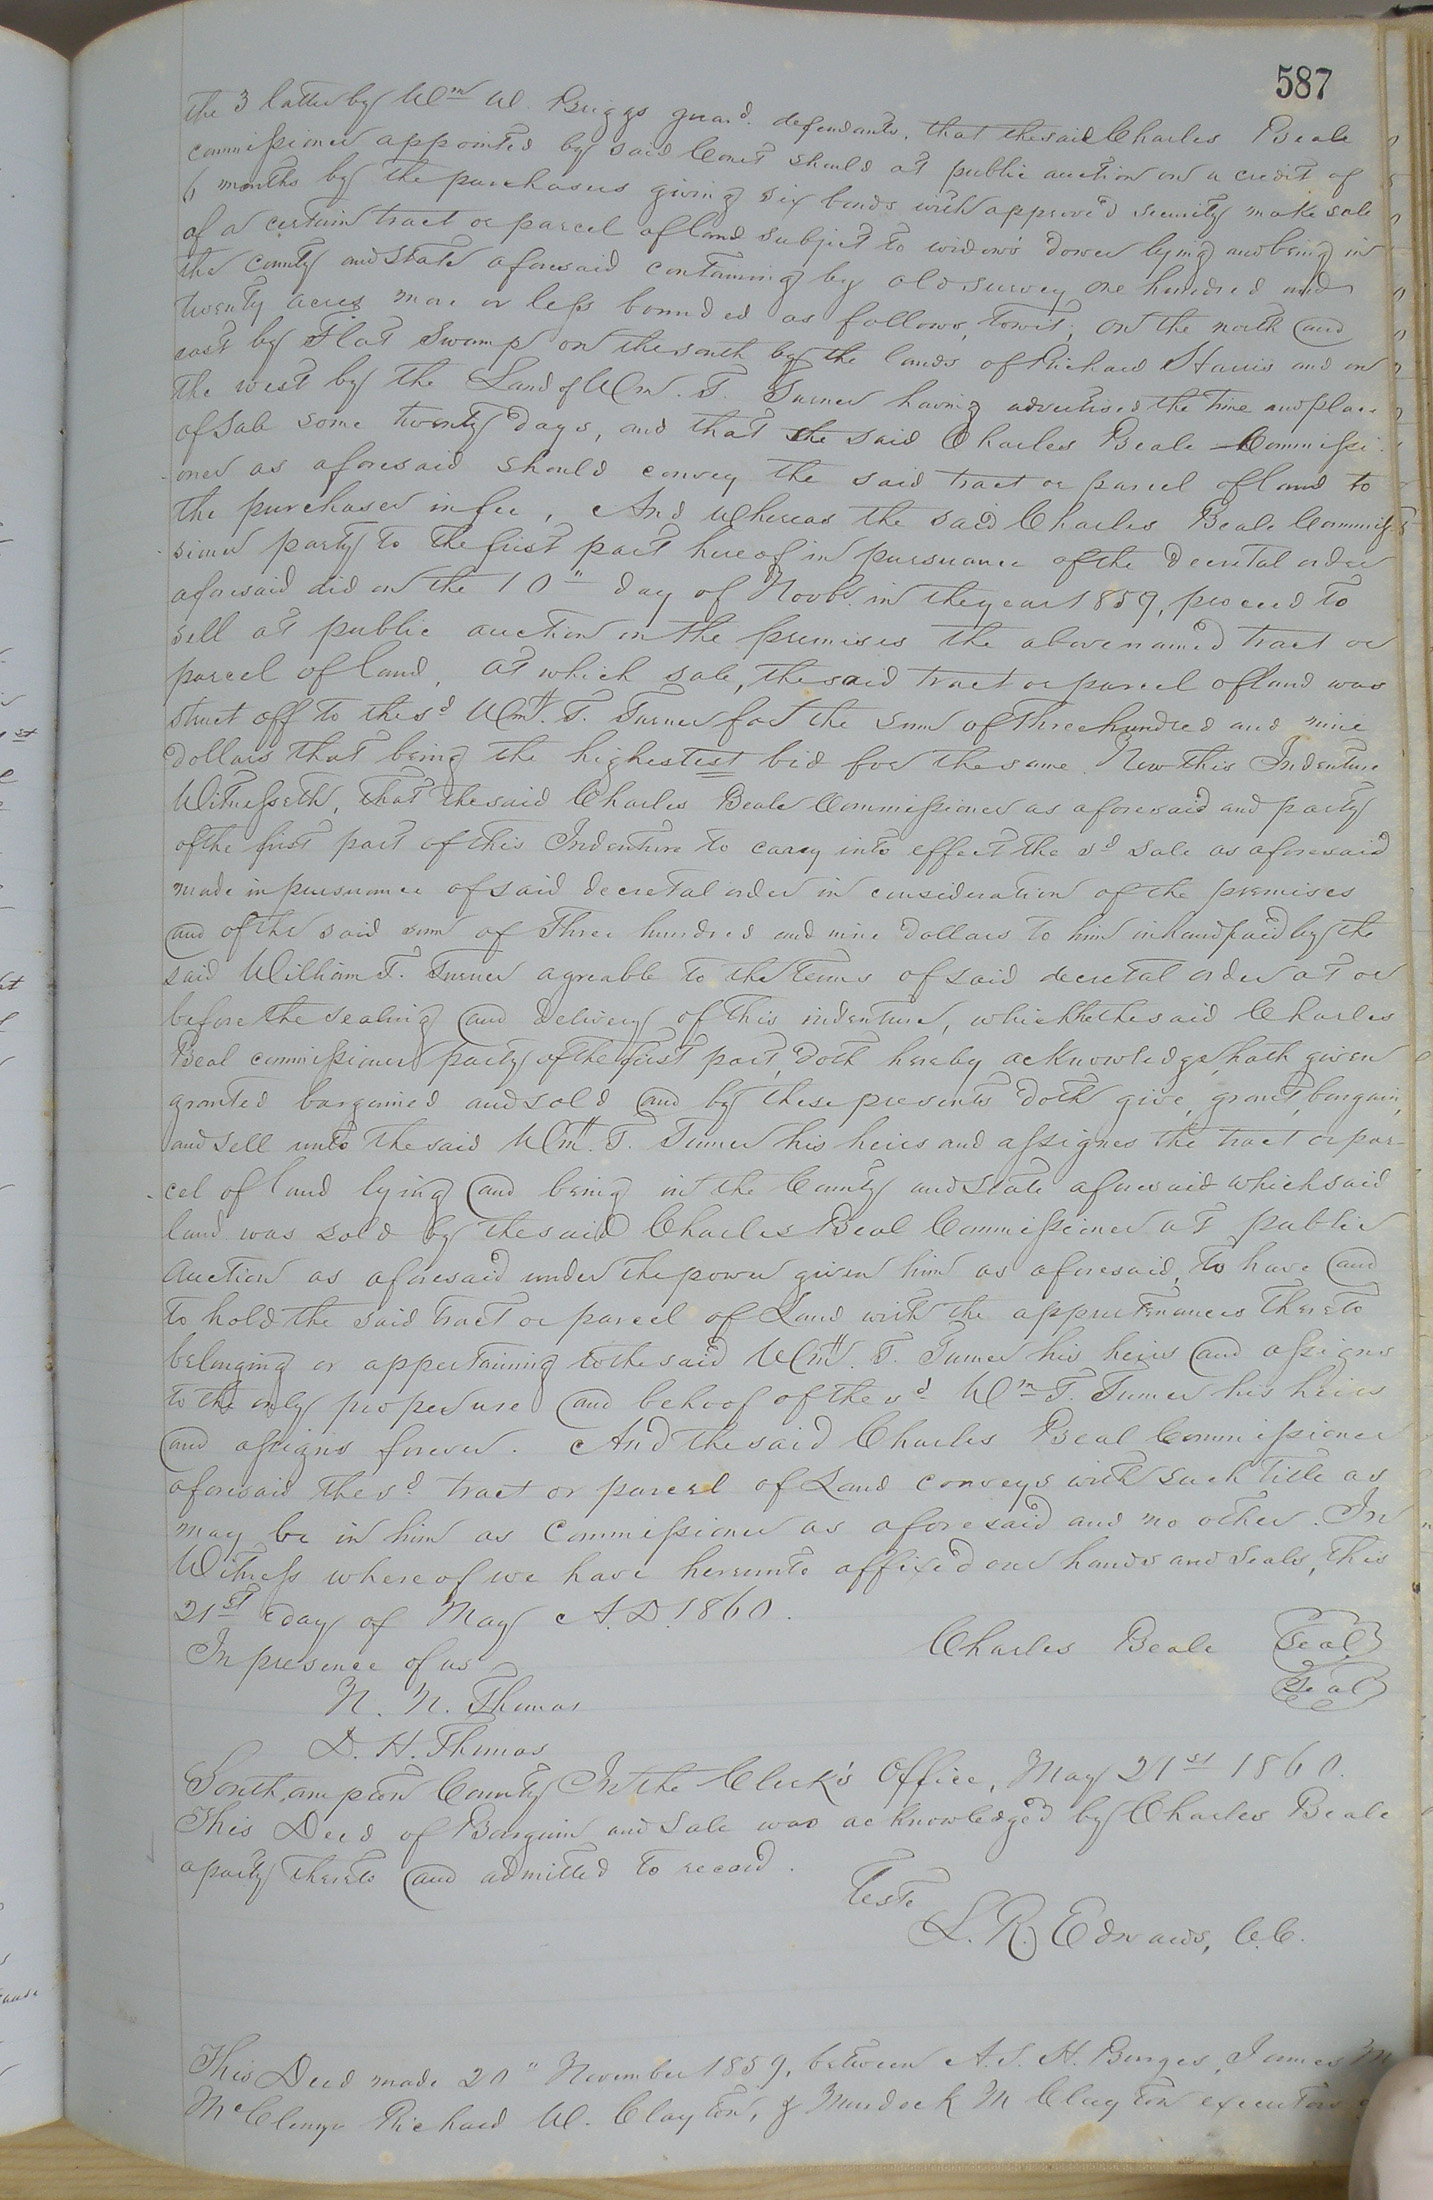 587
the 3 latter by Wm W. Briggs guard. defendants, that the said Charles Beale
commissioner appointed by said Court should at public auction on a credit of
6 months by the purchasers giving six bonds with approved security make sale
of a certain tract or parcel of land subject to widow's dower lying and being in
the County and State aforesaid containing by old survey one hundred and
twenty acres more or less bounded as follows, towit; on the north and
east by Flat Swamp on the south by the lands of Richard Harris and on
the west by the Land of Wm. T. Turner having advertised the time and place
of sale some twenty days, and that the said Charles Beale Commissi-
oner as aforesaid should convey the said tract or parcel of land to
the purchaser in fee, And Whereas the said Charles Beale Commis-
sioner party to the first part hereof in pursuance of the decretal order
aforesaid did on the 10" day of Novbr. in the year 1859, proceed to
sell at public auction in the premises the above named tract or
parcel of land, at which sale, the said tract or parcel of land was
struct off to the sd Wm. T. Turner for the sum of three hundred and nine
dollars that being the highestest bid for the same. Now this Indenture
Witnesseth, That the said Charles Beale Commissioner as aforesaid and party
of the first part of this Indenture to carry into effect the sd sale as aforesaid
made in pursuance of said decretal order in consideration of the premises
and of the said sum of Three hundred and nine dollars to him in hand paid by the
said William T. Turner agreable to the terms of said decretal order at or
before the sealing and delivery of this indenture, which the said Charles
Beal commissioner party of the first part, doth hereby acknowledge, hath given
granted bargained and sold and by these presents doth give, grant, bargain,
and sell unto the said Wm. T. Turner his heirs and assignes the tract or par-
cel of land lying and being in the County and State aforesaid which said
land was sold by the said Charles Beal Commissioner at public
Auction as aforesaid under the power given him as aforesaid, to have and
to hold the said tract or parcel of Land with the appurtenances thereto
belonging or appertaining to the said Wm. T. Turner his heirs and assigns
to the only proper use and behoof of the sd Wm T. Turner his heirs
and assigns forever. And the said Charles Beal Commissioner
aforesaid the sd. tract or parcel of Land conveys with such title as
may be in him as Commissioner as aforesaid and no other. In
Witness whereof we have hereunto affixed our hands and seals, this
21st day of May A.D. 1860.
Charles Beale Seal
In presence of us
Seal
N. N. Thomas
D. H. Thomas
Southampton County In the Clerk's Office, May 21st 1860.
This Deed of Bargain and Sale was acknowledged by Charles Beale
a party thereto and admitted to record.
Teste
L. R. Edwards, C.C.
This Deed made 20" November 1859, between A. S. H. Burges, James M
McClenny Richard W. Clayton, & Murdock M Clayton executors